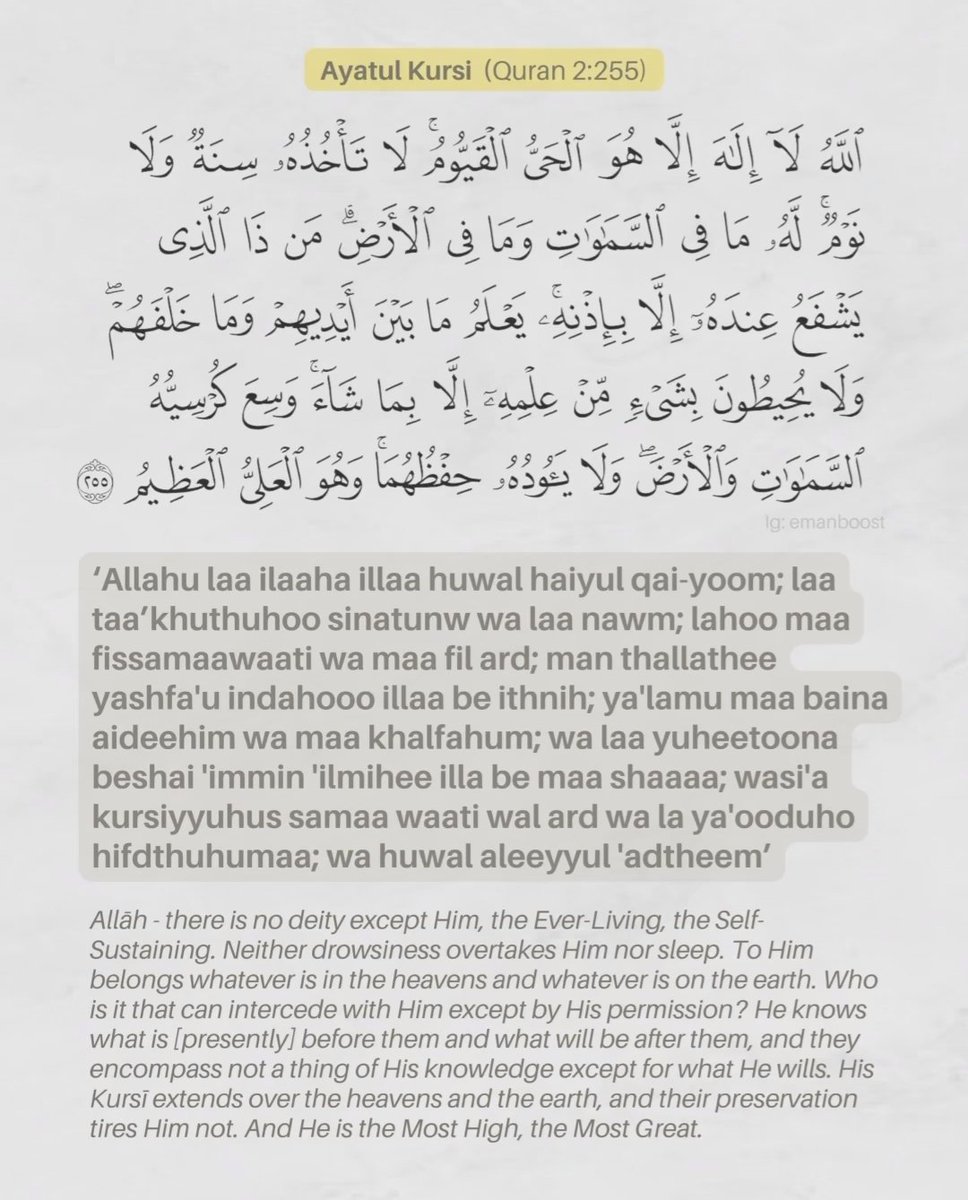 Ayatul Kursi (Quran 2:255)
ٱللَّهُ لَآ إِلَٰهَ إِلَّا هُوَ ٱلْحَىُّ ٱلْقَيُّومُ ۚ لَا تَأْخُذُهُۥ سِنَةٌ وَلَا
نَوْمٌ ۚ لَّهُۥ مَا فِى ٱلسَّمَٰوَٰتِ وَمَا فِى ٱلْأَرْضِ ۗ مَن ذَا ٱلَّذِى
يَشْفَعُ عِندَهُۥٓ إِلَّا بِإِذْنِهِۦ ۚ يَعْلَمُ مَا بَيْنَ أَيْدِيهِمْ وَمَا خَلْفَهُمْ ۖ
وَلَا يُحِيطُونَ بِشَىْءٍ مِّنْ عِلْمِهِۦٓ إِلَّا بِمَا شَآءَ ۚ وَسِعَ كُرْسِيُّهُ
ٱلسَّمَٰوَٰتِ وَٱلْأَرْضَ ۖ وَلَا يَـُٔودُهُۥ حِفْظُهُمَا ۚ وَهُوَ ٱلْعَلِىُّ ٱلْعَظِيمُ ٢٥٥
Ig: emanboost
‘Allahu laa ilaaha illaa huwal haiyul qai-yoom; laa
taa’khuthuhoo sinatunw wa laa nawm; lahoo maa
fissamaawaati wa maa fil ard; man thallathee
yashfa'u indahooo illaa be ithnih; ya'lamu maa baina
aideehim wa maa khalfahum; wa laa yuheetoona
beshai 'immin 'ilmihee illa be maa shaaaa; wasi'a
kursiyyuhus samaa waati wal ard wa la ya'ooduho
hifdthuhumaa; wa huwal aleeyyul 'adtheem’
Allāh - there is no deity except Him, the Ever-Living, the Self-
Sustaining. Neither drowsiness overtakes Him nor sleep. To Him
belongs whatever is in the heavens and whatever is on the earth. Who
is it that can intercede with Him except by His permission? He knows
what is [presently] before them and what will be after them, and they
encompass not a thing of His knowledge except for what He wills. His
Kursī extends over the heavens and the earth, and their preservation
tires Him not. And He is the Most High, the Most Great.